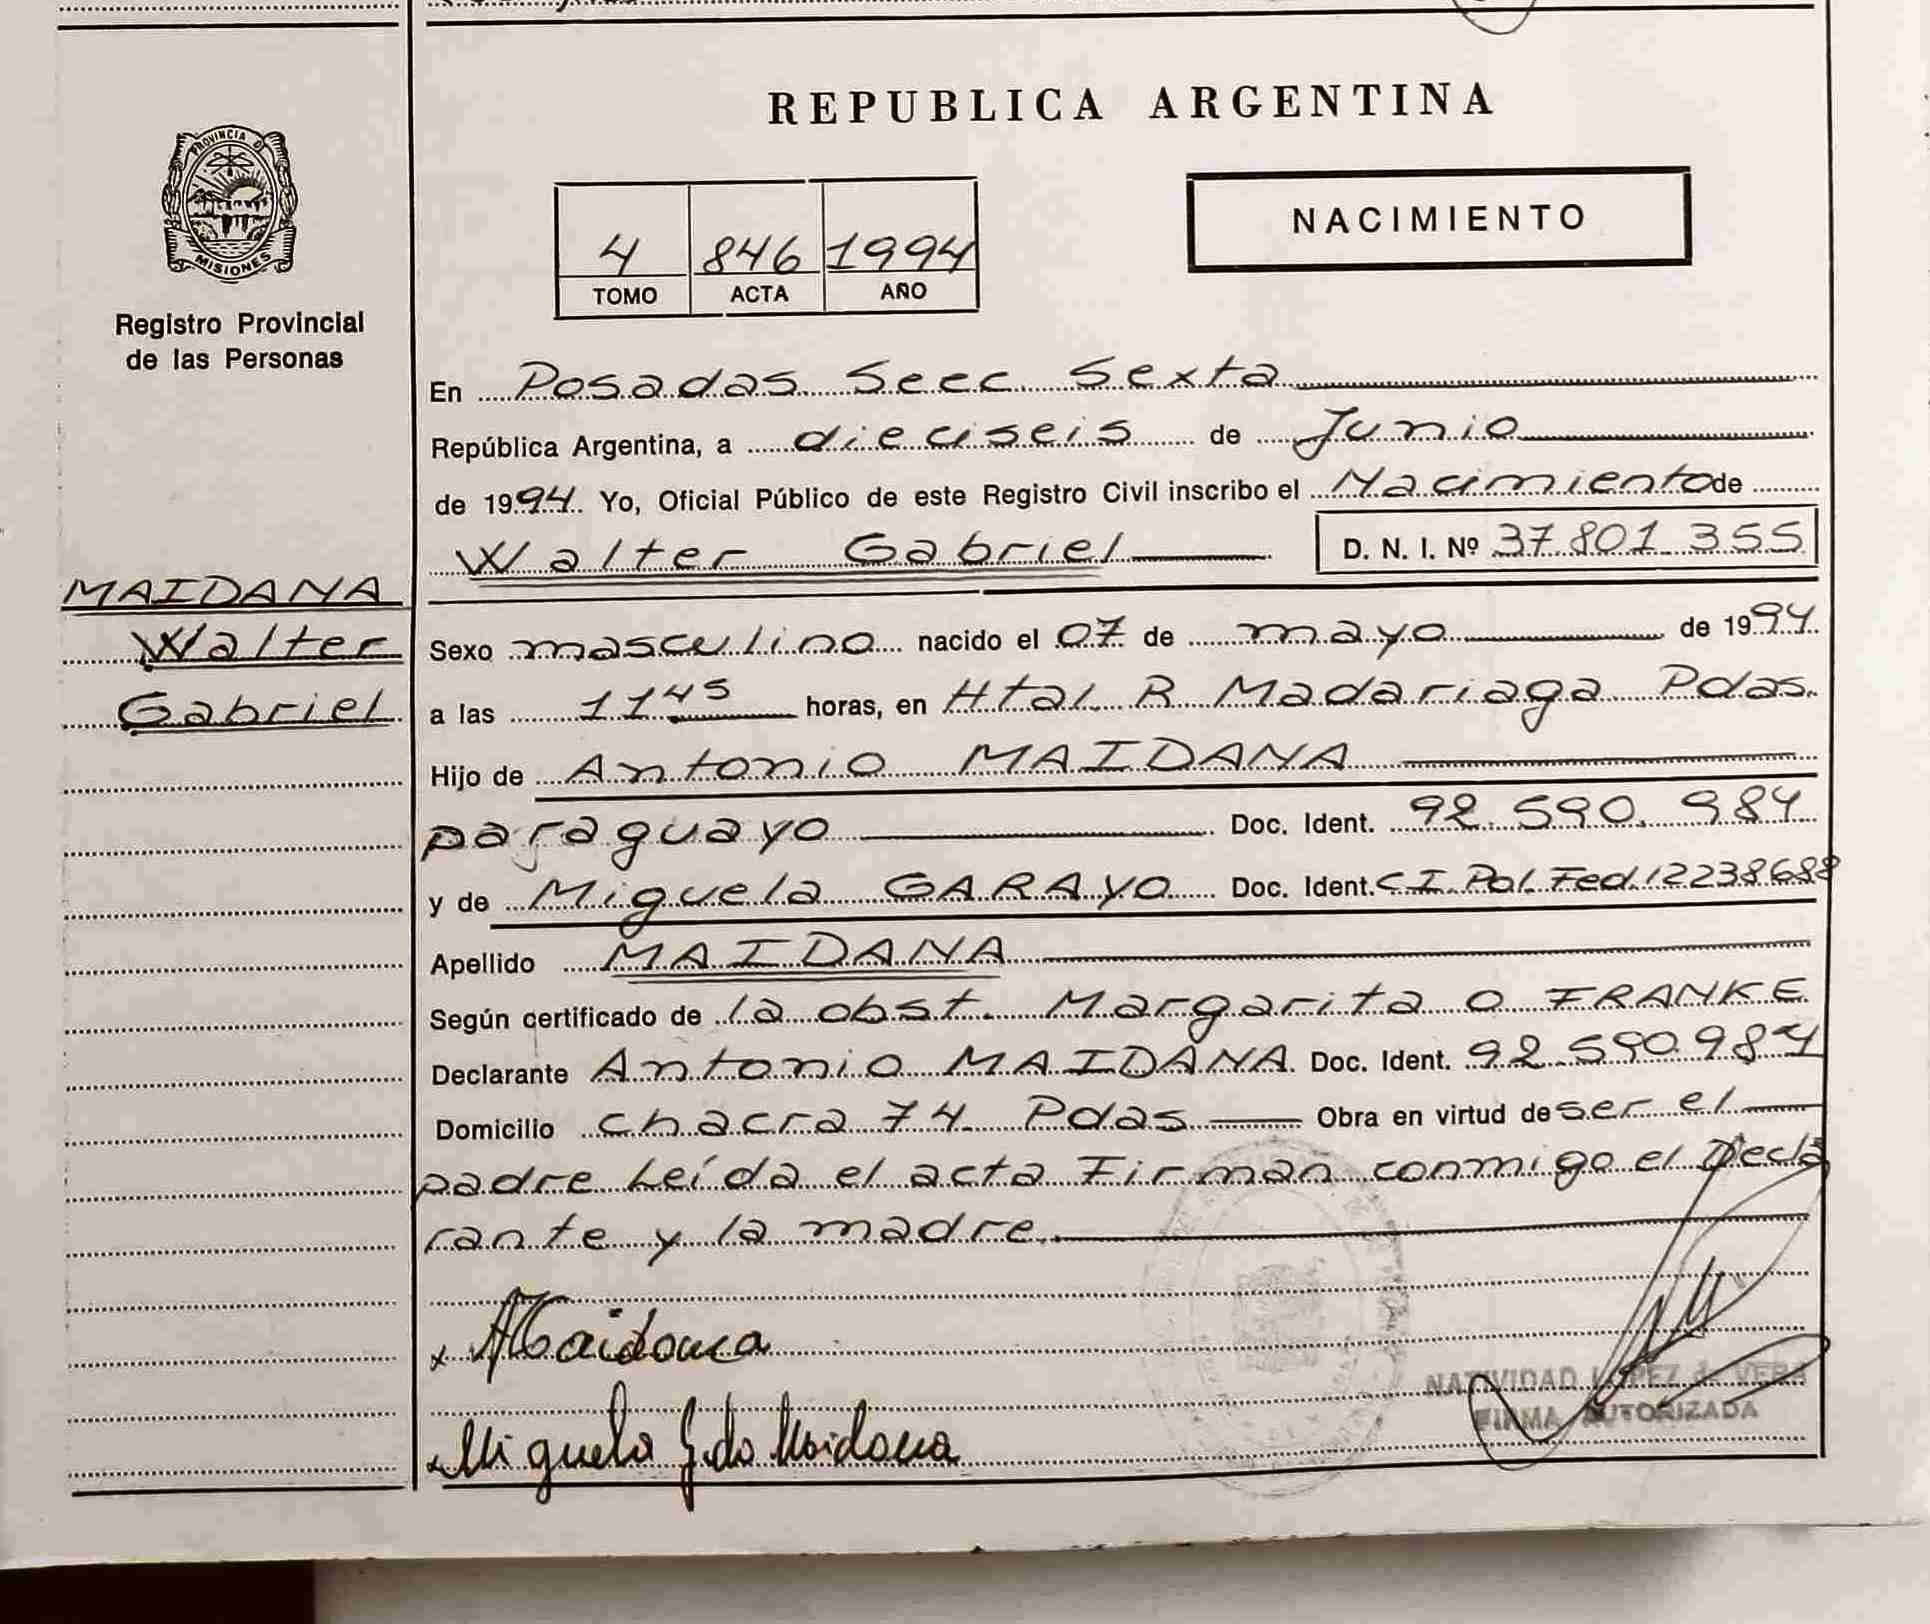 REPUBLICA ARGENTINA
PROVINCIA D
MISIONES
Registro Provincial
de las Personas
NACIMIENTO
4 846 1994
TOMO ACTA AÑO
En Posadas Secc. Sexta
República Argentina, a dieciseis de Junio
de 1994. Yo, Oficial Público de este Registro Civil inscribo el Nacimiento de
Walter Gabriel D. N. I. Nº 37.801.355
MAIDANA
Walter
Gabriel
Sexo masculino nacido el 07 de mayo de 1994.
a las 11 45 horas, en Htal. R. Madariaga Pdas.
Hijo de Antonio MAIDANA
paraguayo Doc. Ident. 92.590.984
y de Miguela GARAYO Doc. Ident. C.I. Pol. Fed. 12238688
Apellido MAIDANA
Según certificado de la obst. Margarita O FRANKE
Declarante Antonio MAIDANA. Doc. Ident. 92.590984
Domicilio chacra 74. Pdas Obra en virtud de ser el
padre Leída el acta Firman conmigo el Decla
rante y la madre.
x AMaidana
x Miguela G. de Maidana
NATIVIDAD LOPEZ de VERA
FIRMA AUTORIZADA